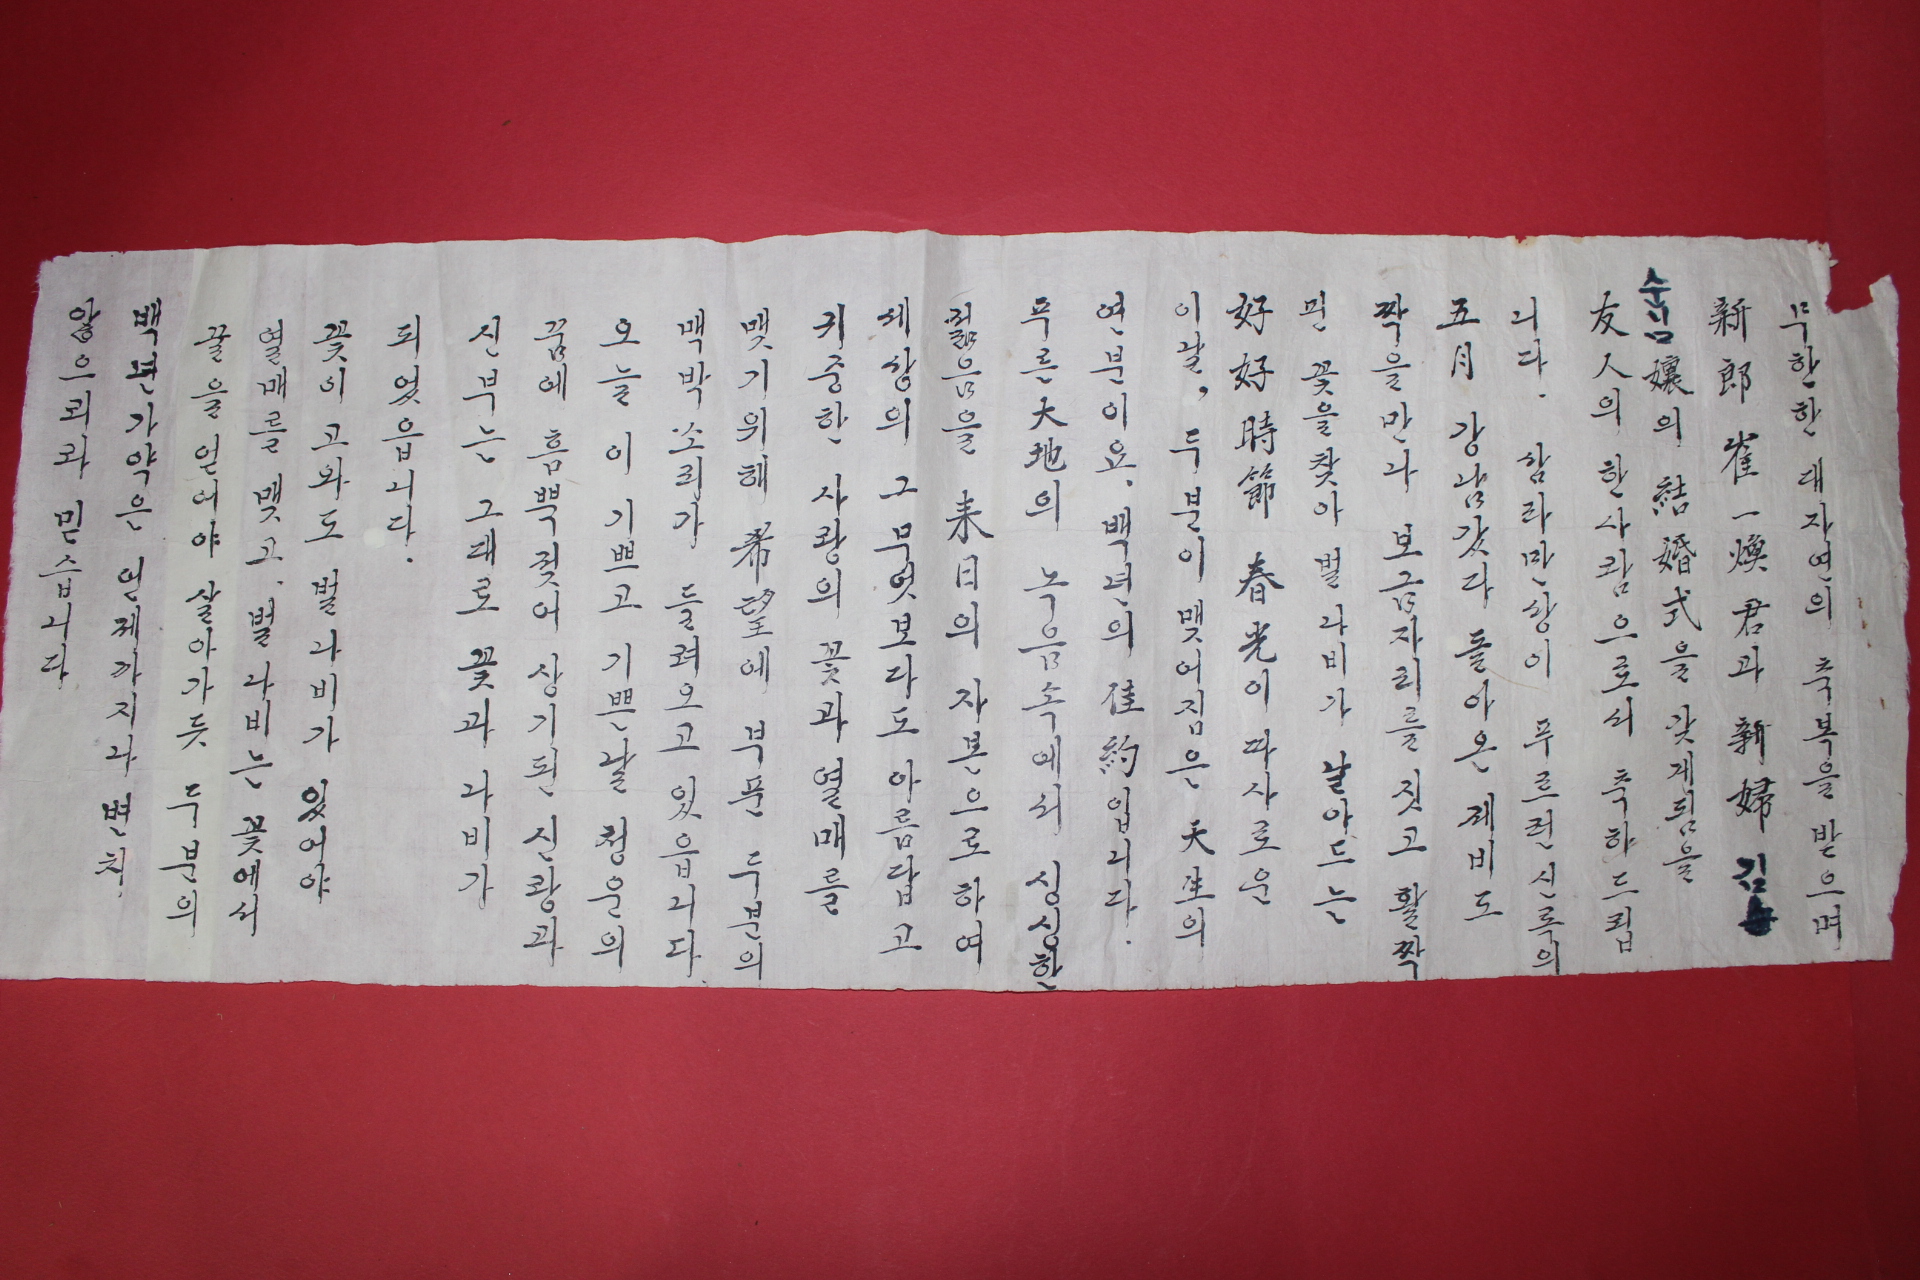 무한한 대자연의 축복을 받으며
新郎 崔一煥君과 新婦 김
순님孃의 結婚式을 갖게됨을
友人의 한사람으로서 축하드립
니다. 삼라만상이 푸르런신록의
五月 강남갔다 돌아온 제비도
짝을만나 보금자리를 짓고 활짝
핀 꽃을찾아 벌나비가 날아드는
好好時節 春光이 따사로운
이날, 두분이 맺어짐은 天生의
연분이요. 백년의 佳約입니다.
푸른大地의 녹음속에서 싱싱한
젊음을 来日의 자본으로하여
세상의 그 무엇보다도 아름답고
귀중한 사랑의 꽃과 열매를
맺기위해 希望에 부푼 두분의
맥박소리가 들려오고 있읍니다
오늘 이 기쁘고 기쁜날 청운의
꿈에 흠뻑젖어 상기된 신랑과
신부는 그대로 꽃과 나비가
되었읍니다.
꽃이 고와도 벌나비가 있어야
열매를 맺고. 벌나비는 꽃에서
꿀을 얻어야 살아가듯 두분의
백년가약은 언제까지나 변치
않으리라 믿습니다